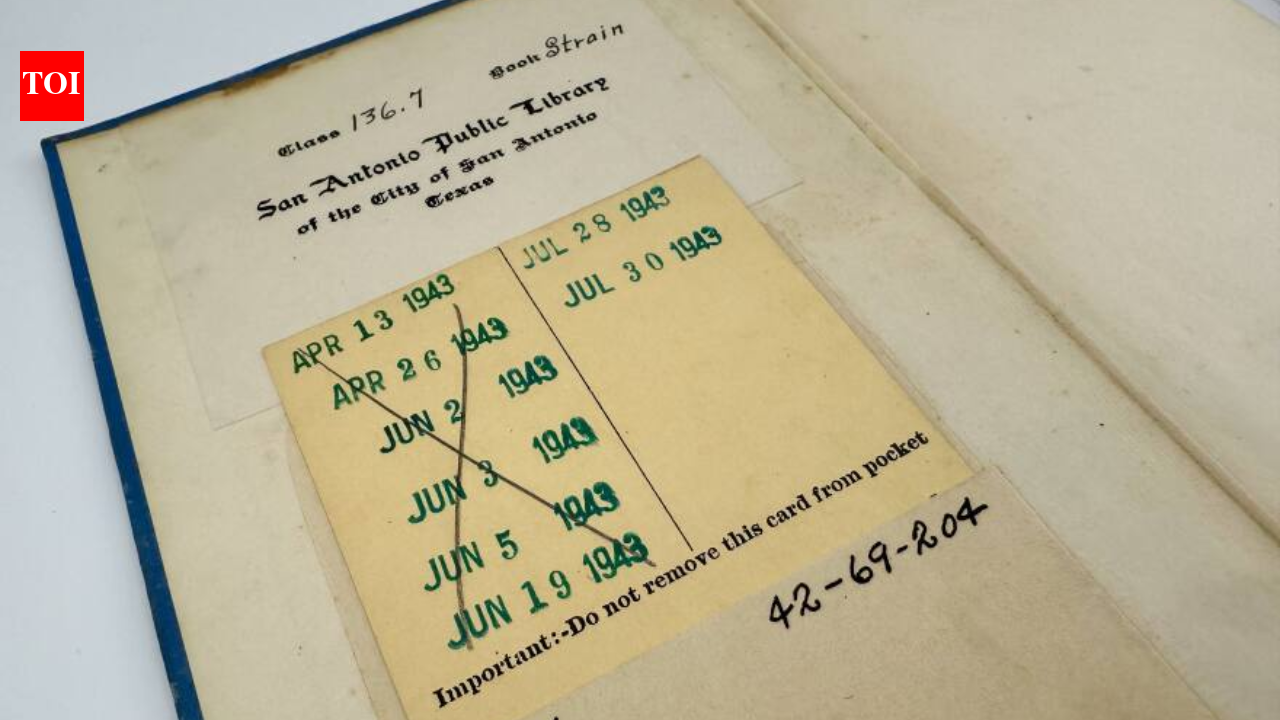 TOI
Class 136.7 Book Strain
San Antonio Public Library
of the City of San Antonio
Texas
APR 13 1943
APR 26 1943
JUN 2 1943
JUN 3 1943
JUN 5 1943
JUN 19 1943
JUL 28 1943
JUL 30 1943
Important:-Do not remove this card from pocket
42-69-204